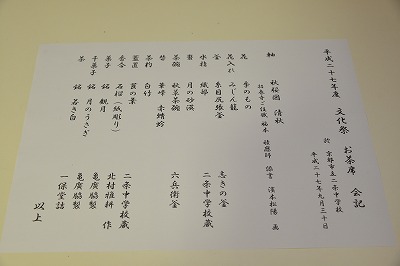 平成二十七年度 文化祭 お茶席 会記
於 京都市立二条中学校
平成二十七年九月三十日
軸 秋桜図 清秋
画
花 季のもの
花入れ みじん籠
釜 糸目尻張釜 志きの釜
水指 織部 二条中学校蔵
棗 月の砂漠
茶碗 秋草茶碗 六兵衛釜
替 筆峰 赤蜻蛉
茶杓 白竹
蓋置 笹の葉 二条中学校蔵
香合 石榴(紙彫り) 北村雅耕 作
菓子 銘 観月 亀廣脇製
干菓子 銘 月のうさぎ 亀廣脇製
茶 銘 若き白 一保堂詰
以上